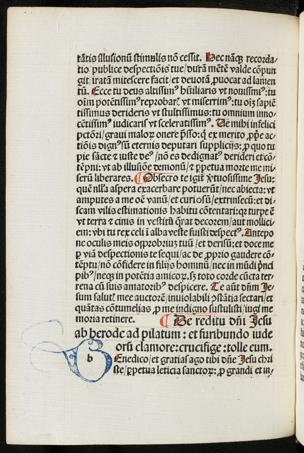 tātis illusionū stimulis nō cessit. Hec nāqȝ recorda-
tio publice despectiōis tue/durā mētē valde cōpun-
git iratā mitescere facit/et deuotā puocat ad lamen-
tū. Ecce tu deus altissimꝰ huiliaris vt nouissimꝰ: tu
oīm potētissimꝰ reprobarꝭ vt miserrimꝰ: tu oīȝ sapiē-
tissimus derideris vt stultissimus: tu omnium inno-
cētissimꝰ iudicarꝭ vt sceleratissimꝰ. Ue mihi infelici
pctōri/graui malorꝝ onere ꝑsso: q̄ ex merito ꝓpe ac-
tiōis dignꝰ sū eternis deputari supplicijs: ꝓ quo tu
pie sāctе ꞇ iuste deꝰ/nō es dedignatꝰ derideri et cō-
tēpni: vt ab illusiōe demonū/et ꝑpetua morte me mi-
serū liberares. Obsecro te igiꞇ ꝟtuosissime Jesu:
quē nlla aspera exacerbare potuerūt/nec abiecta: vt
amputes a me oē vanū/et curiosū/extrinsecū: et di-
scam vilis estimationis habitu cōtentarі: q̄ꝛ turpe ē
vt terra ꞇ cinis in vestitu q̄rat decorem/aut mollici-
em: vbi tu rex celi ī alba veste fuisti despectꝰ. Antepo
ne oculis meis opprobriuȝ tuū/et derisū: et doce me
ꝓ viā despectionis te sequi/ac de ꝓprio gaudere cō-
tēptu/nō cōfidere in filijs hominū/nec in mūdi pnci
pibꝰ/neqȝ in potētia amicorꝝ: sȝ toto corde cūcta ter-
rena cū suis amatoribꝰ despicere. Te aūt dn̄m Je-
sum saluꞇ mee auctorē/inuiolabili ꝑstātia sectari/et
quātas cōtumelias ꝓ me indigno sustulisti/iugi me
moria retinere. De reditu dn̄i Jesu
ab herode ad pilatum: et furibundo iude
orū clamore: crucifige: tolle eum.
b Enedico/et gratias ago tibi dn̄e Jesu chri
ste/ꝑpetua leticia sanctorꝝ: ꝓ grandi et in-